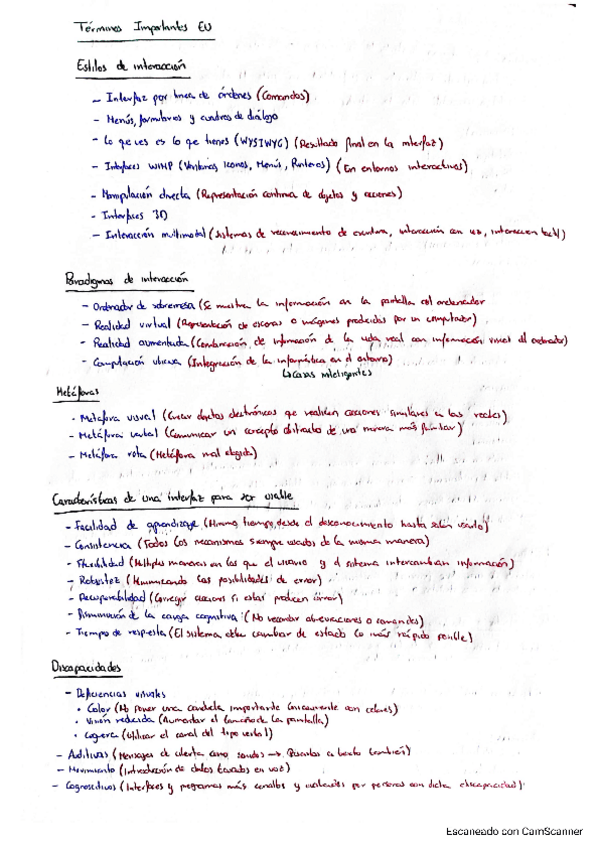 Términos Importantes EU
Estilos de interacción
- Interfaz por linea de órdenes (Comandos)
- Menús, formularios y cuadros de diálogo
- Lo que ves es lo que tienes (WYSIWYG) (Resultado final en la interfaz)
- Interfaces WIMP (Ventanas, Iconos, Menús, Punteros) (En entornos interactivos)
- Manipulación directa (Representación continua de objetos y acciones)
- Interfaces 3D
- Interacción multimodal (Sistemas de reconocimiento de escritura, interacción con voz, interaccion táctil)
Paradigmas de interacción
- Ordenador de sobremesa (Se muestra la información en la pantalla del ordenador
- Realidad virtual (Representación de escenas o imágenes producidas por un computador)
- Realidad aumentada (Combinación de información de la vida real con información visual del ordenador)
- Computación ubicua (Integración de la informática en el entorno)
↳ casas inteligentes
Metáforas
- Metáfora visual (Crear objetos electrónicos que realicen acciones similares a los reales)
- Metáfora verbal (Comunicar un concepto abstracto de una manera más familiar)
- Metáfora rota (Metáfora mal elegida)
Características de una interfaz para ser usable
- Facilidad de aprendizaje (Mínimo tiempo desde el desconocimiento hasta saber usarlo)
- Consistencia (Todos los mecanismos siempre usados de la misma manera)
- Flexibilidad (Multiples maneras en las que el usuario y el sistema intercambian información)
- Robustez (Minimizando las posibilidades de error)
- Recuperabilidad (Corregir acciones si estas producen error)
- Disminución de la carga cognitiva (No recordar abreviaciones o comandos)
- Tiempo de respuesta (El sistema debe cambiar de estado lo más rápido posible)
Discapacidades
- Deficiencias visuales
• Color (No poner una conducta importante únicamente con colores)
• Visión reducida (Aumentar el tamaño de la pantalla)
• Ceguera (Utilizar el canal de tipo verbal)
- Auditivas (Mensajes de alerta como sonidos → Pasarlos a texto también)
- Movimiento (Introducción de datos basados en voz)
- Cognoscitivos (Interfaces y programas más sencillos y por personas con dicha discapacidad)
Escaneado con CamScanner